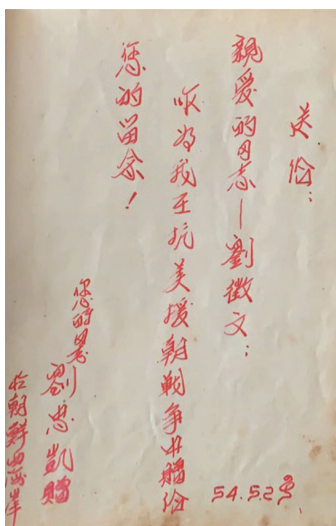 送给：
親爱的同志—劉徵文：
做为我在抗美援朝戦争中赠给
您的留念！
您的
劉忠凱赠
於朝鲜西海岸
54.5.2